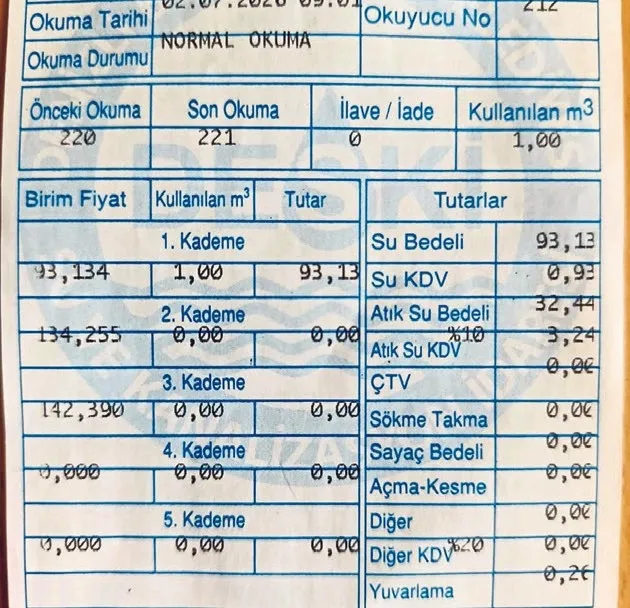 Okuma Tarihi 02.07.2026 09:01 Okuyucu No 212
Okuma Durumu NORMAL OKUMA
Önceki Okuma Son Okuma İlave / İade Kullanılan m³
220 221 0 1,00
DESKİ
Birim Fiyat Kullanılan m³ Tutar Tutarlar
1. Kademe Su Bedeli 93,13
93,134 1,00 93,13 Su KDV 0,93
2. Kademe Atık Su Bedeli 32,44
134,255 0,00 0,00 Atık Su KDV %10 3,24
3. Kademe ÇTV 0,00
142,390 0,00 0,00 Sökme Takma 0,00
4. Kademe Sayaç Bedeli 0,00
0,000 0,00 0,00 Açma-Kesme 0,00
5. Kademe Diğer 0,00
0,000 0,00 0,00 Diğer KDV %20 0,00
Yuvarlama 0,26